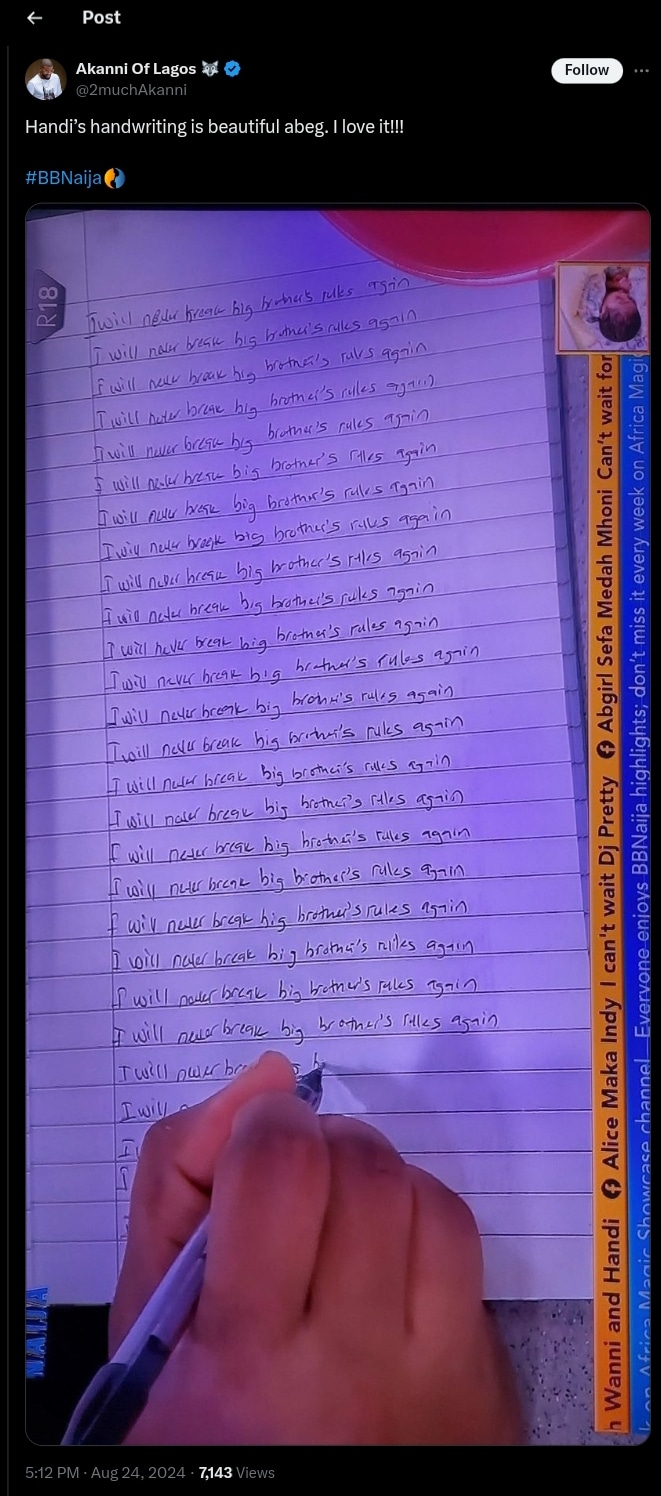 Post
Akanni Of Lagos
@2muchAkanni
Follow
Handi's handwriting is beautiful abeg. I love it!!!
#BBNaija
R18
I will never break big brother's rules again
I will never break big brother's rules again
I will never break big brother's rules again
I will never break big brother's rules again
I will never break big brother's rules again
I will never break big brother's rules again
I will never break big brother's rules again
I will never break big brother's rules again
I will never break big brother's rules again
I will never break big brother's rules again
I will never break big brother's rules again
I will never break big brother's rules again
I will never break big brother's rules again
I will never break big brother's rules again
I will never break big brother's rules again
I will never break big brother's rules again
I will never break big brother's rules again
I will never break big brother's rules again
I will never break big brother's rules again
I will never break big brother's rules again
I will never break big brother's rules again
I will never break big brother's rules again
I will never
I will
I
I
NAIJA
Wanni and Handi Alice Maka Indy I can't wait Dj Pretty Abgirl Sefa Medah Mhoni Can't wait for
on Africa Magic Showcase channel Everyone enjoys BBNaija highlights; don't miss it every week on Africa Magic
5:12 PM · Aug 24, 2024 · 7,143 Views